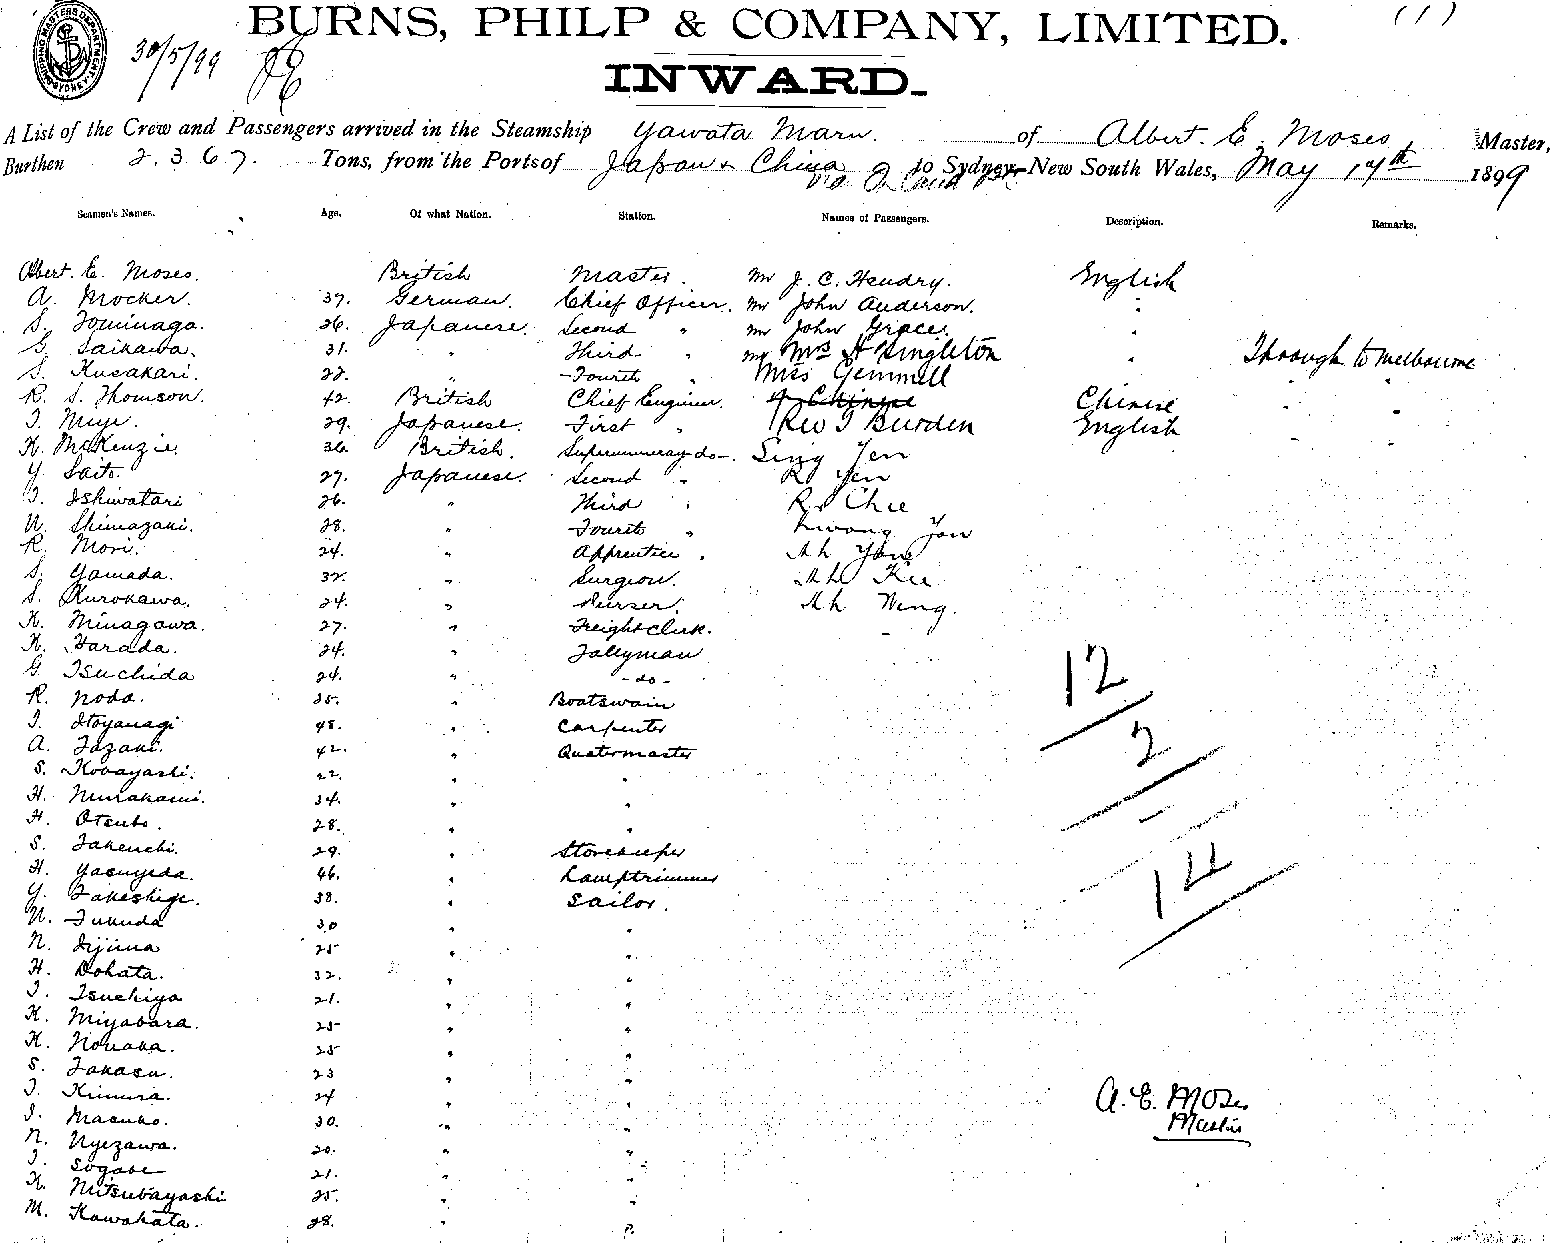 BURNS, PHILP & COMPANY, LIMITED. (1)
30/5/99
INWARD.
A List of the Crew and Passengers arrived in the Steamship Yawata Maru. of Albert. E. Moses Master,
Burthen 2.367. Tons, from the Ports of Japan & China to Sydney New South Wales, May 17th 1899
via
Seamen's Names. Age. Of what Nation. Station. Names of Passengers. Description. Remarks.
Albert. E. Moses. British Master. Mr J. C. Hendry. English
A. Mocker. 37. German. Chief Officer. Mr John Anderson. "
S. Tominaga. 26. Japanese. Second " Mr John Grace. "
G. Saikawa. 31. " Third " Mrs H Singleton " Through to Melbourne
S. Kusakari. 22. " Fourth " Miss Gemmell " "
R. S. Thomson. 42. British Chief Engineer. 4 Chinese Chinese " "
T. Miye. 29. Japanese. First " Rev T Burden English " "
K. McKenzie. 36. British. Supernumerary -do-. Sing Yen
Y. Saito. 27. Japanese. Second " R. Yen
T. Ishiwatari 26. " Third " R. Chee
N. Shimazaki. 28. " Fourth " Kwong Yon
R. Mori. 24. " Apprentice. Ah Yon
S. Yamada. 32. " Surgeon. Ah Kee
S. Kurokawa. 24. " Purser. Ah Wing.
K. Minagawa. 27. " Freight clerk.
K. Harada. 24. " Talleyman
G. Tsuchida 24. " -do-
R. Noda. 35. " Boatswain
I. Itoyanagi 48. " Carpenter
A. Tazaki. 42. " Quatermaster
S. Kobayashi. 22. " "
H. Murakami. 34. " "
H. Otsubo. 28. " "
S. Takeuchi. 29. " Storekeeper
H. Yasuyeda. 46. " Lamptrimmer
Y. Takeshige. 38. " Sailor.
N. Fukuda 30 " "
N. Iijima 25 " "
H. Dohata. 32. " "
T. Tsuchiya 21. " "
K. Miyabara. 25 " "
K. Nonaka. 25 " "
S. Takasu. 23 " "
T. Kimura. 24 " "
I. Masuko. 30. " "
N. Nyezawa. 20. " "
T. Sogabe 21. " "
K. Mitsubayashi 25. " "
M. Kawahata. 28. " "
12
2
14
A. E. Moses
Master